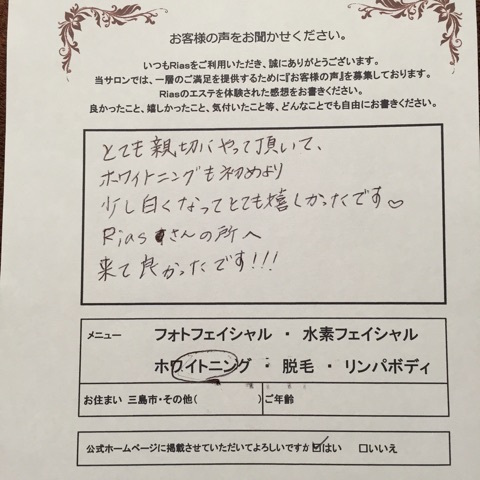 お客様の声をお聞かせください。
いつもRiasをご利用いただき、誠にありがとうございます。
当サロンでは、一層のご満足を提供するために『お客様の声』を募集しております。
Riasのエステを体験された感想をお書きください。
良かったこと、嬉しかったこと、気付いたこと等、どんなことでも自由にお書きください。
とても親切にやって頂いて、
ホワイトニングも初めより
少し白くなってとても嬉しかったです♡
Rias さんの所へ
来て良かったです!!!
メニュー フォトフェイシャル ・ 水素フェイシャル
ホワイトニング ・ 脱毛 ・ リンパボディ
お住まい 三島市・その他( ) ご年齢
公式ホームページに掲載させていただいてよろしいですか ☑はい □いいえ